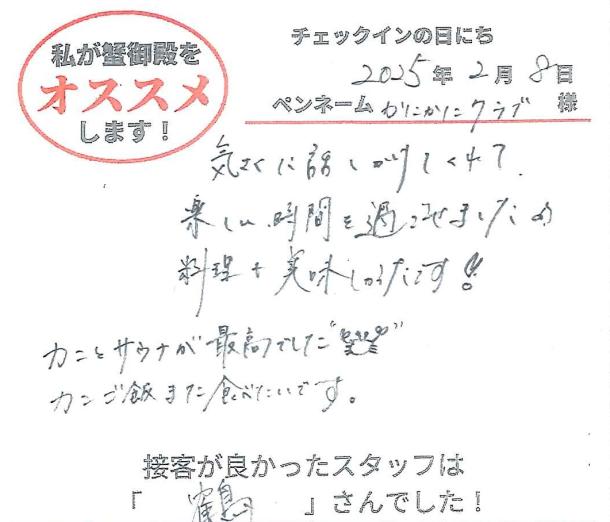 私が蟹御殿を
オススメ
します！
チェックインの日にち
2025年2月8日
ペンネーム かにかにクラブ 様
気さくに話しかけてくれて
楽しい時間を過ごせました
料理も美味しかったです!!
カニとサウナが最高でした
カニご飯また食べたいです。
接客が良かったスタッフは
「 鶴 」さんでした！